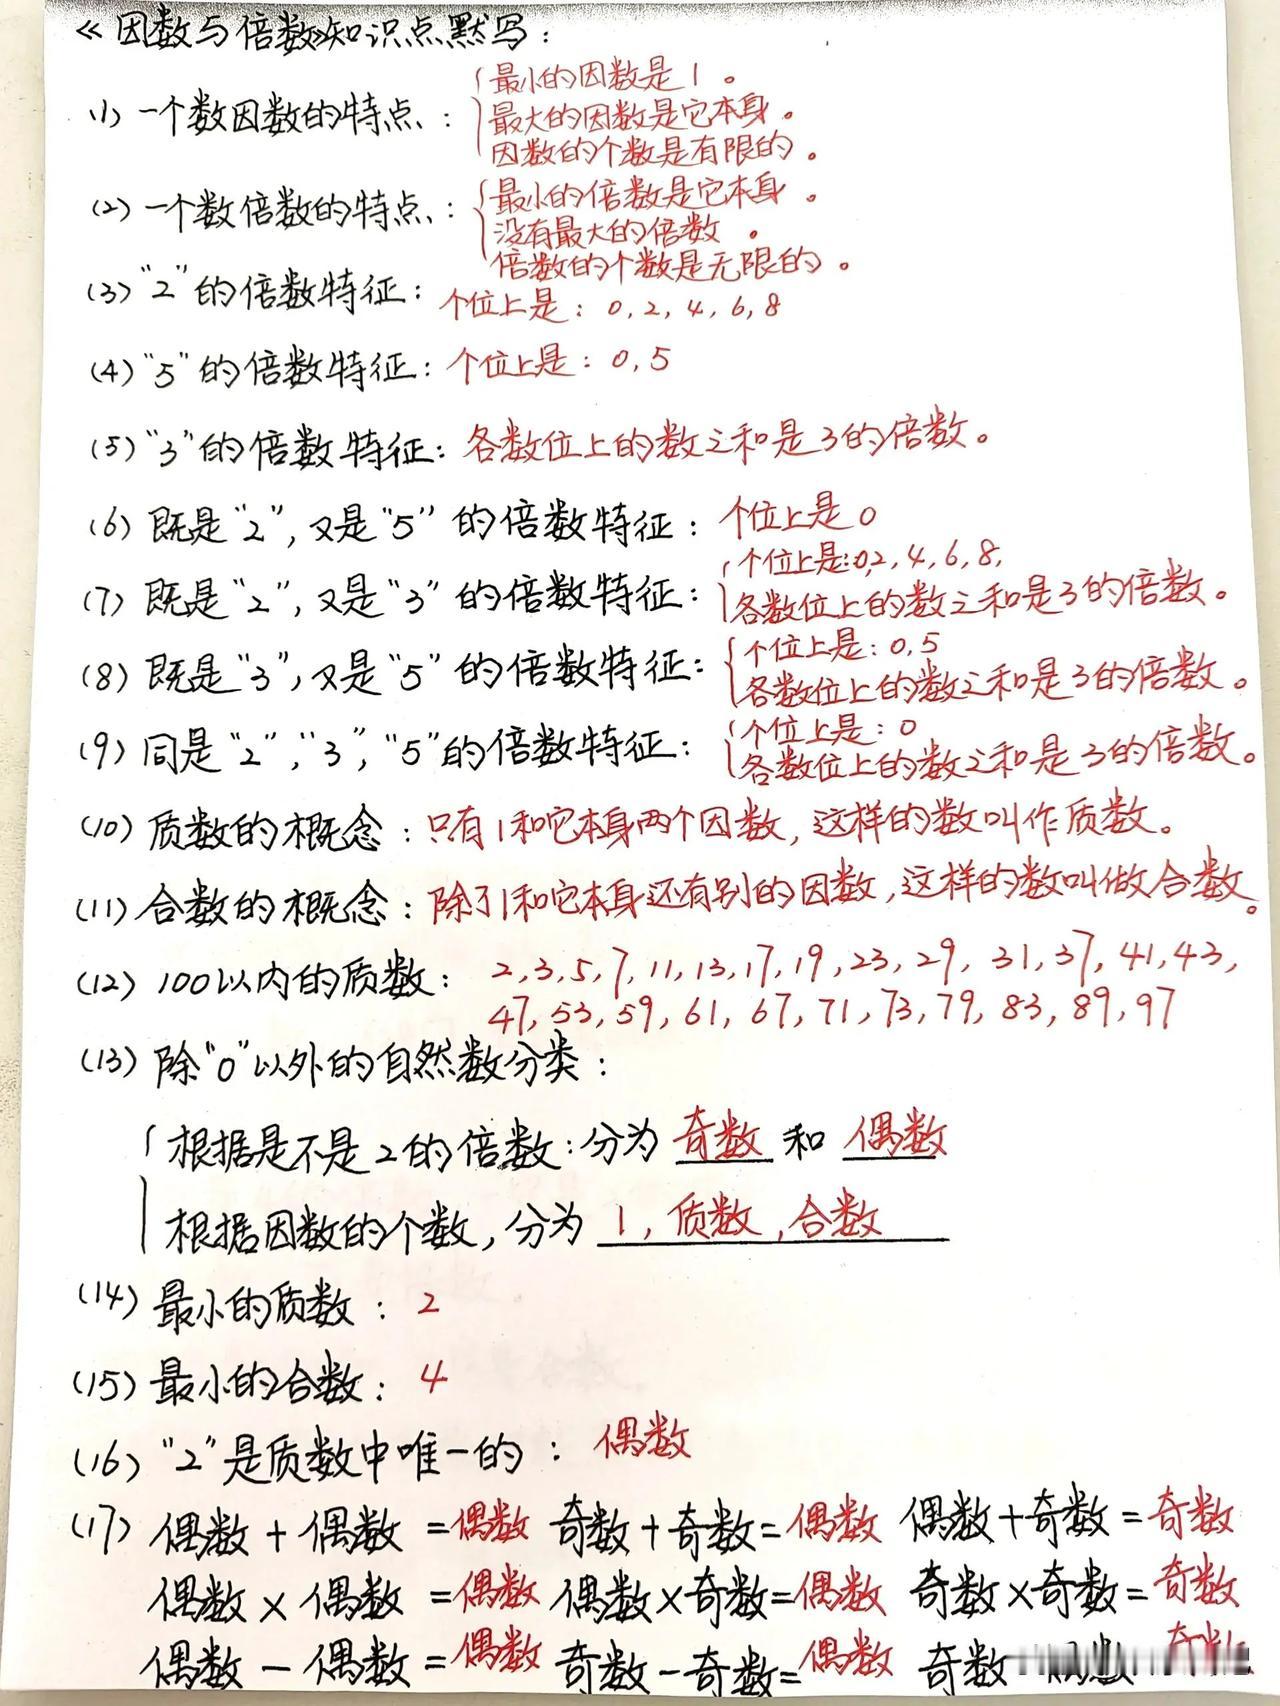 《因数与倍数》知识点默写:
(1) 一个数因数的特点: 最小的因数是1。
最大的因数是它本身。
因数的个数是有限的。
(2) 一个数倍数的特点: 最小的倍数是它本身。
没有最大的倍数。
倍数的个数是无限的。
(3) "2"的倍数特征: 个位上是: 0, 2, 4, 6, 8
(4) "5"的倍数特征: 个位上是: 0, 5
(5) "3"的倍数特征: 各数位上的数之和是3的倍数。
(6) 既是"2", 又是"5"的倍数特征: 个位上是0
(7) 既是"2", 又是"3"的倍数特征: 个位上是:0,2, 4, 6, 8,
各数位上的数之和是3的倍数。
(8) 既是"3", 又是"5"的倍数特征: 个位上是: 0, 5
各数位上的数之和是3的倍数。
(9) 同是"2", "3", "5"的倍数特征: 个位上是: 0
各数位上的数之和是3的倍数。
(10) 质数的概念: 只有1和它本身两个因数, 这样的数叫作质数。
(11) 合数的概念: 除了1和它本身还有别的因数, 这样的数叫做合数。
(12) 100以内的质数: 2, 3, 5, 7, 11, 13, 17, 19, 23, 29, 31, 37, 41, 43,
47, 53, 59, 61, 67, 71, 73, 79, 83, 89, 97
(13) 除"0"以外的自然数分类:
根据是不是2的倍数: 分为 奇数 和 偶数
根据因数的个数, 分为 1, 质数, 合数
(14) 最小的质数: 2
(15) 最小的合数: 4
(16) "2"是质数中唯一的: 偶数
(17) 偶数 + 偶数 = 偶数 奇数 + 奇数 = 偶数 偶数 + 奇数 = 奇数
偶数 × 偶数 = 偶数 偶数 × 奇数 = 偶数 奇数 × 奇数 = 奇数
偶数 - 偶数 = 偶数 奇数 - 奇数 = 偶数 奇数